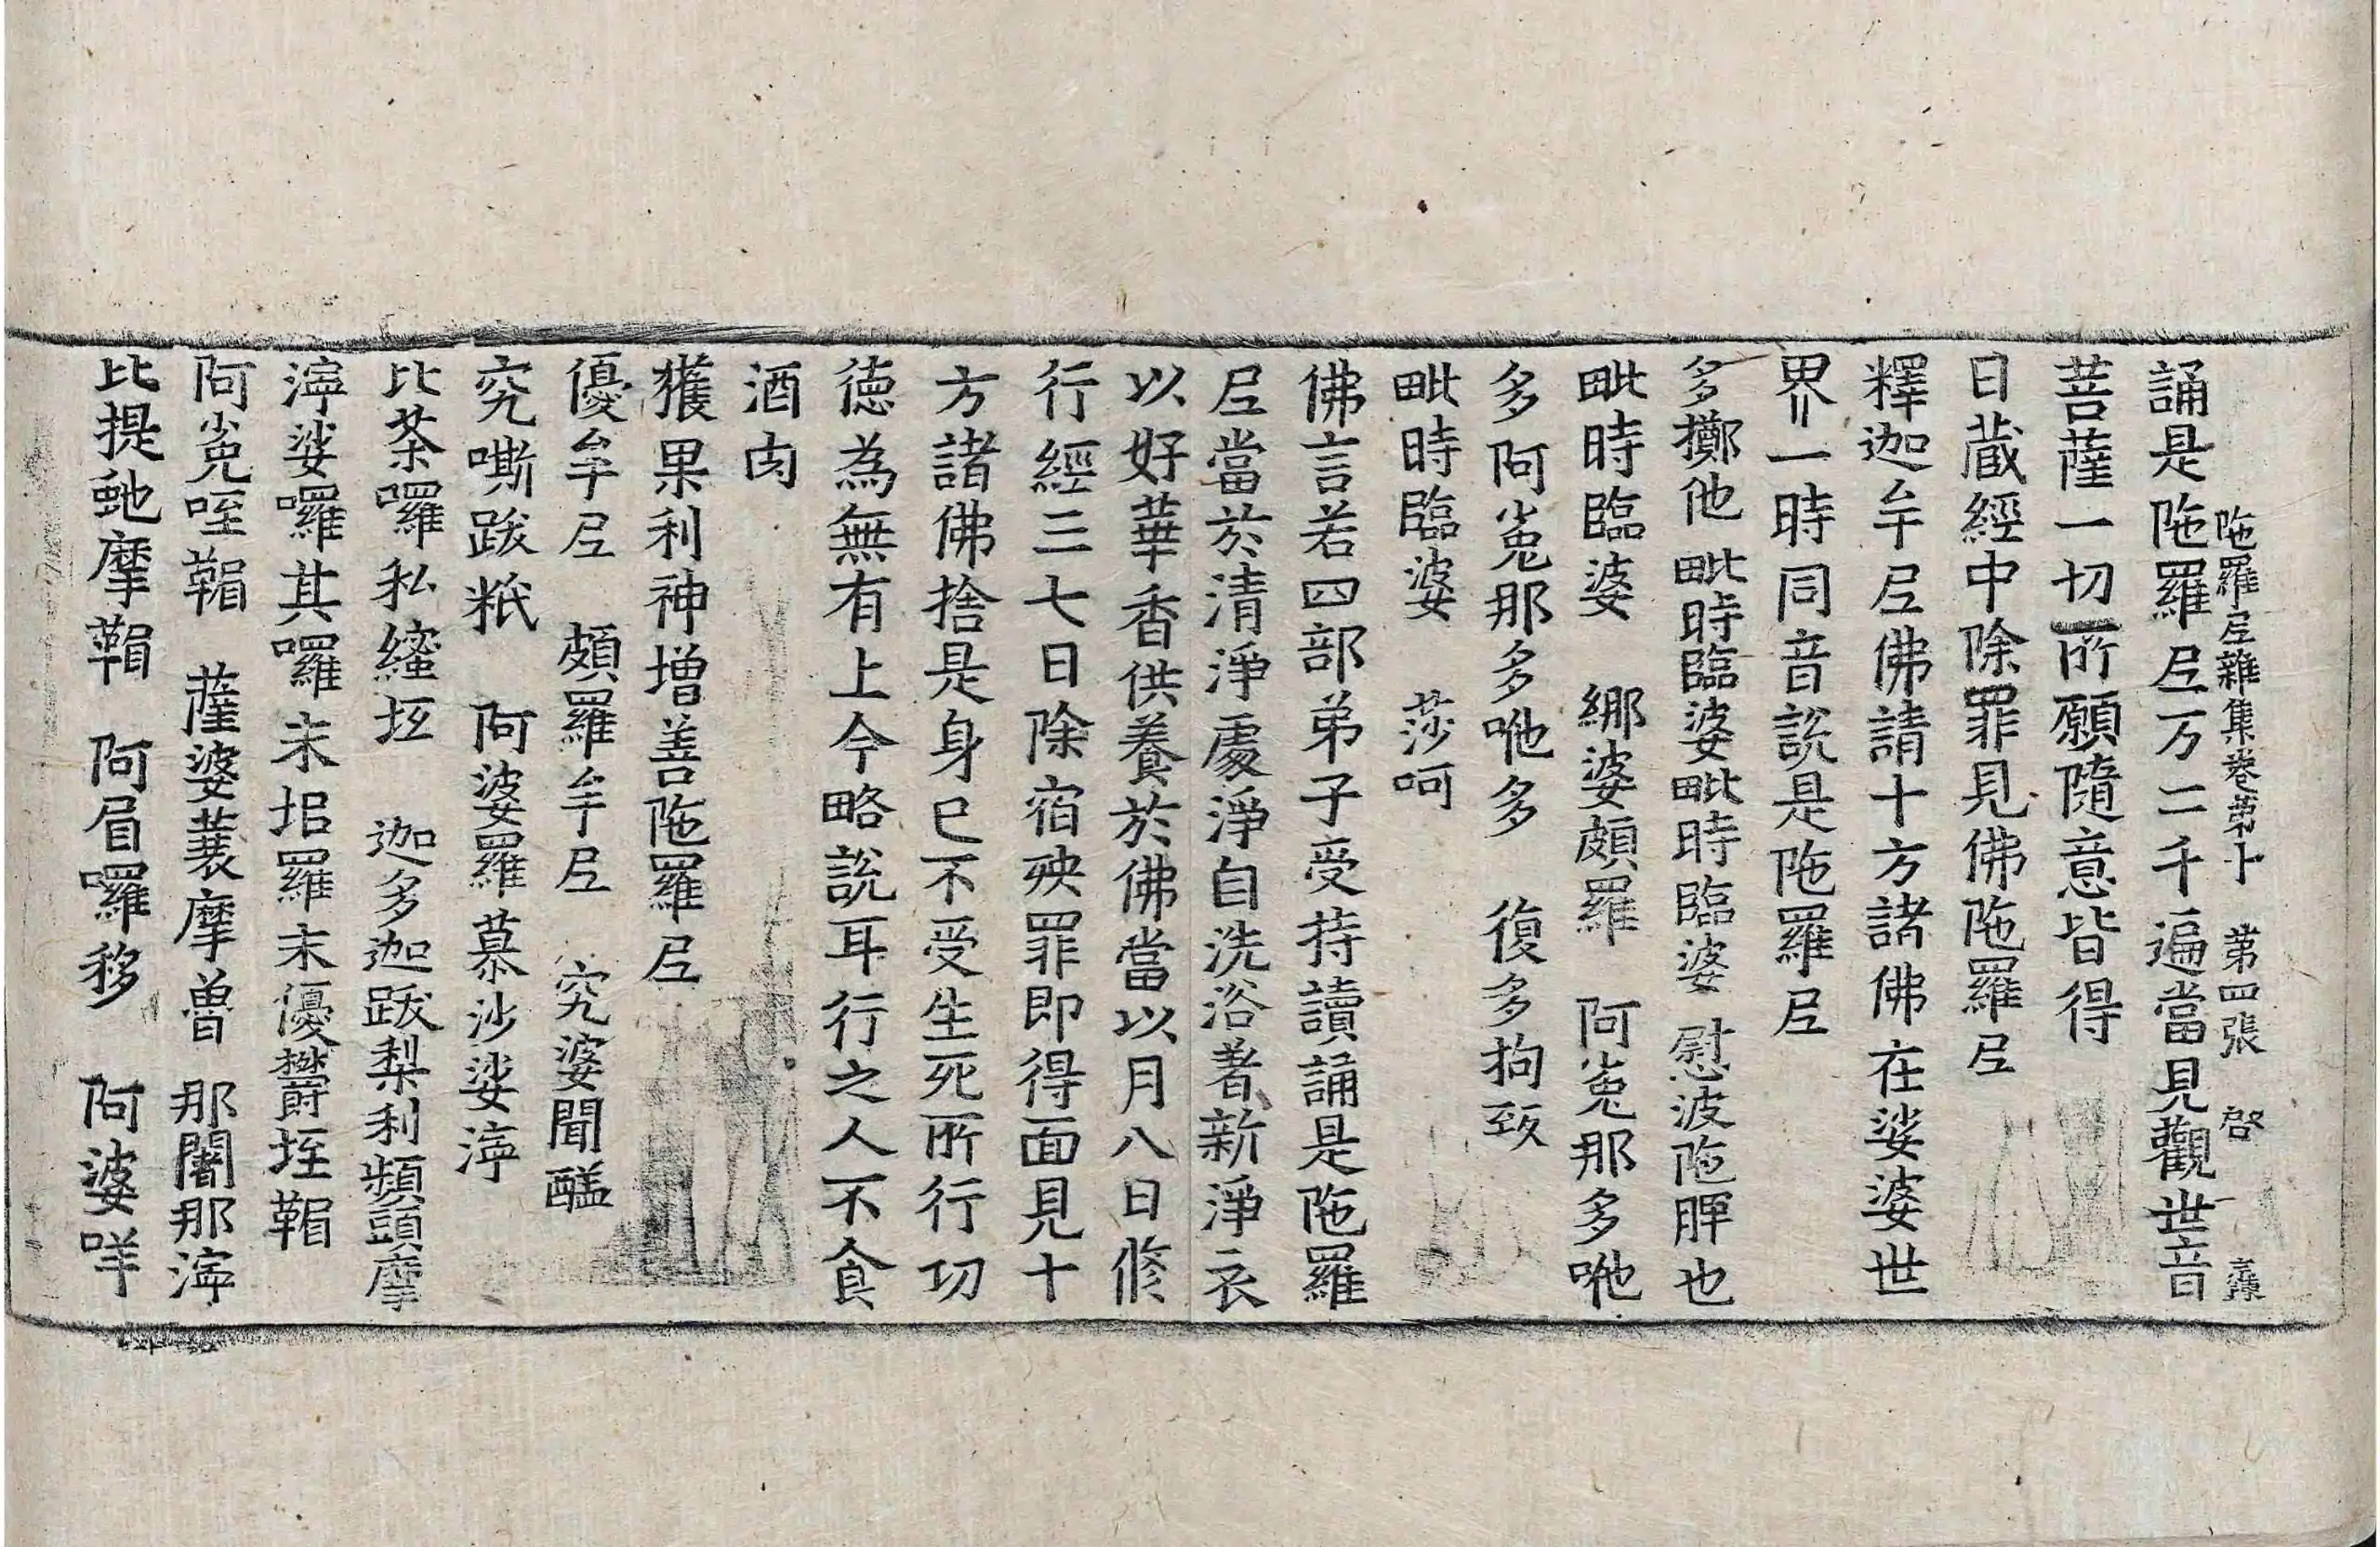 陁羅尼雜集卷第十　第四張　啓
誦是陁羅尼万二千遍當見觀世音
菩薩一切所願隨意皆得
日蔵經中除罪見佛陁羅尼
釋迦牟尼佛請十方諸佛在娑婆世
界一時同音說是陁羅尼
多擲他　毗時臨婆毗時臨婆　慰波陁脾也
毗時臨婆　綁婆頗羅　阿㝹那多咃
多阿㝹那多咃多　復多拘致
毗時臨婆　莎呵
佛言若四部弟子受持讀誦是陁羅
尼當於清淨處淨自洗浴著新淨衣
以好華香供養於佛當以月八日修
行經三七日除宿殃罪即得面見十
方諸佛捨是身已不受生死所行功
德為無有上今略說耳行之人不食
酒肉
獲果利神增善陁羅尼
優牟尼　頗羅牟尼　究婆閻醯
究嘶跋秖　阿婆羅慕沙娑㝹
比荼囉私𦆯坻　迦多迦跋梨利頻頭摩
㝹娑囉其囉末坥羅末優欝垤鞙
阿㝹咥鞙　薩婆蓑摩曾　那闍那㝹
比提虵摩鞙　阿眉囉移　阿婆咩